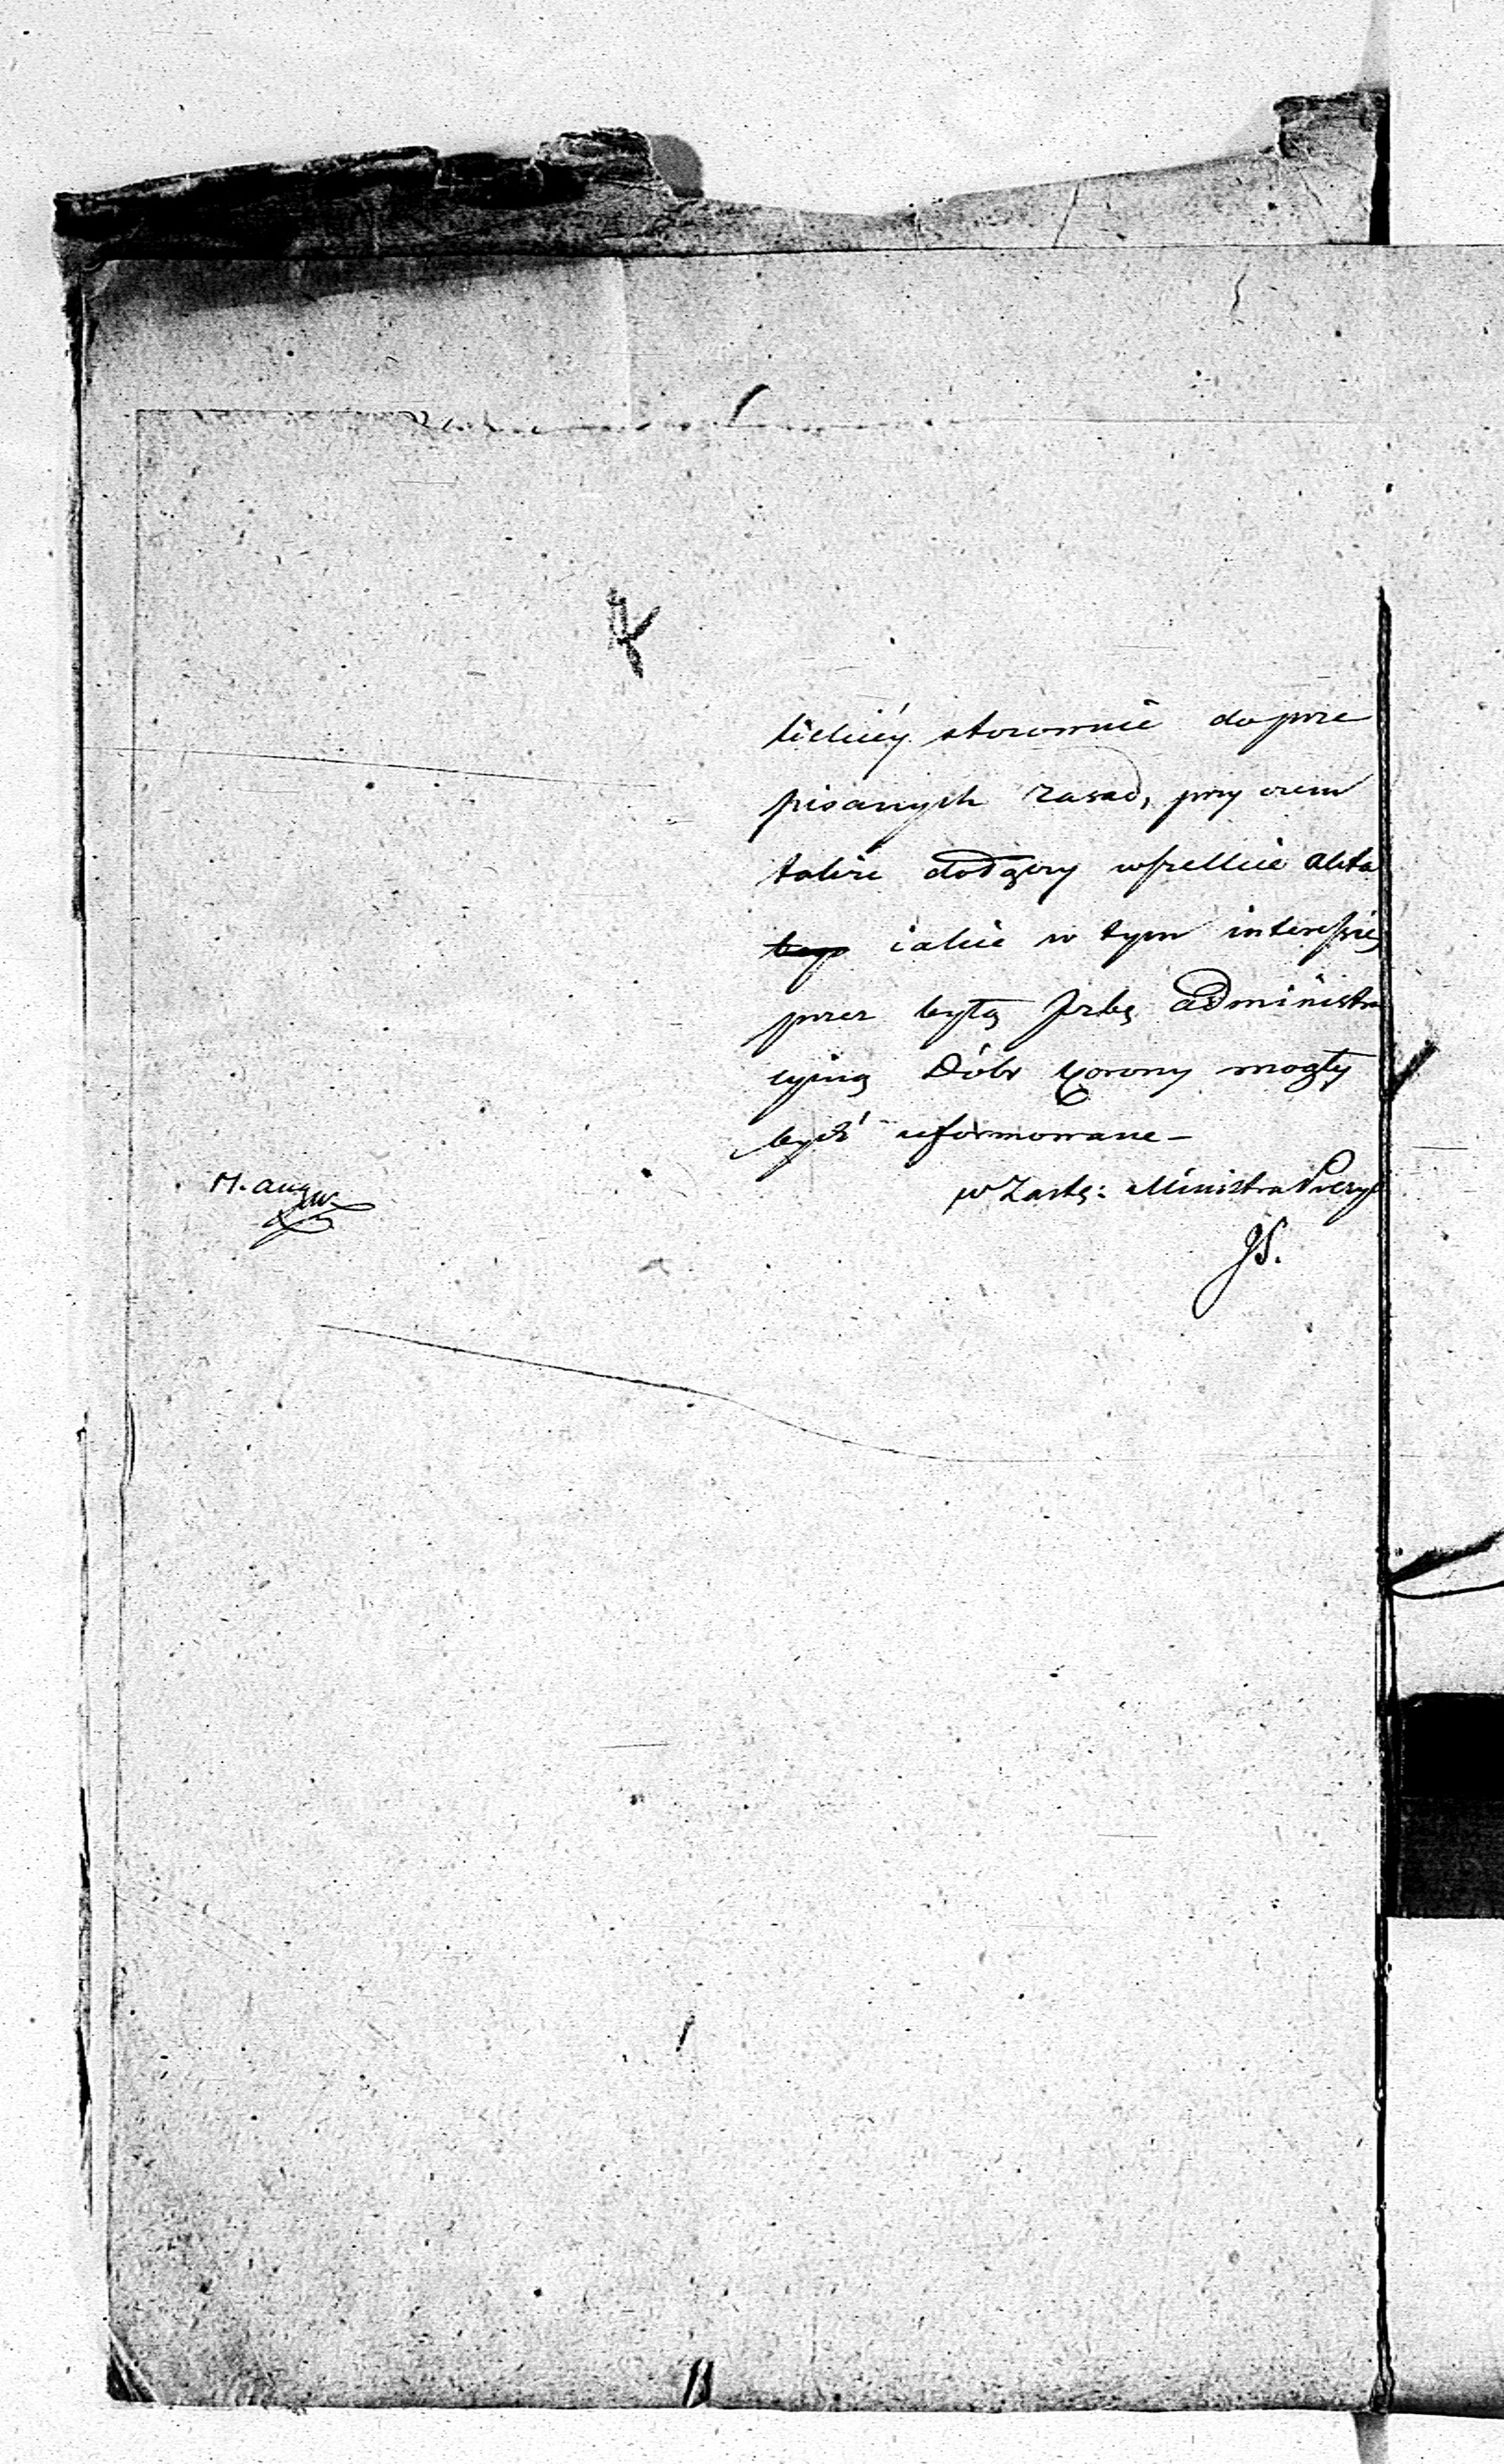 stosownie do prze
pisanych zasad, przy czem
także dołączy wszelkie akta
iakie w tym interessie
przez byłą Jzbę administra
cyiną Dóbr Korony mogły
bydź uformowane —
w Zastę: Ministra Prezy
JS.